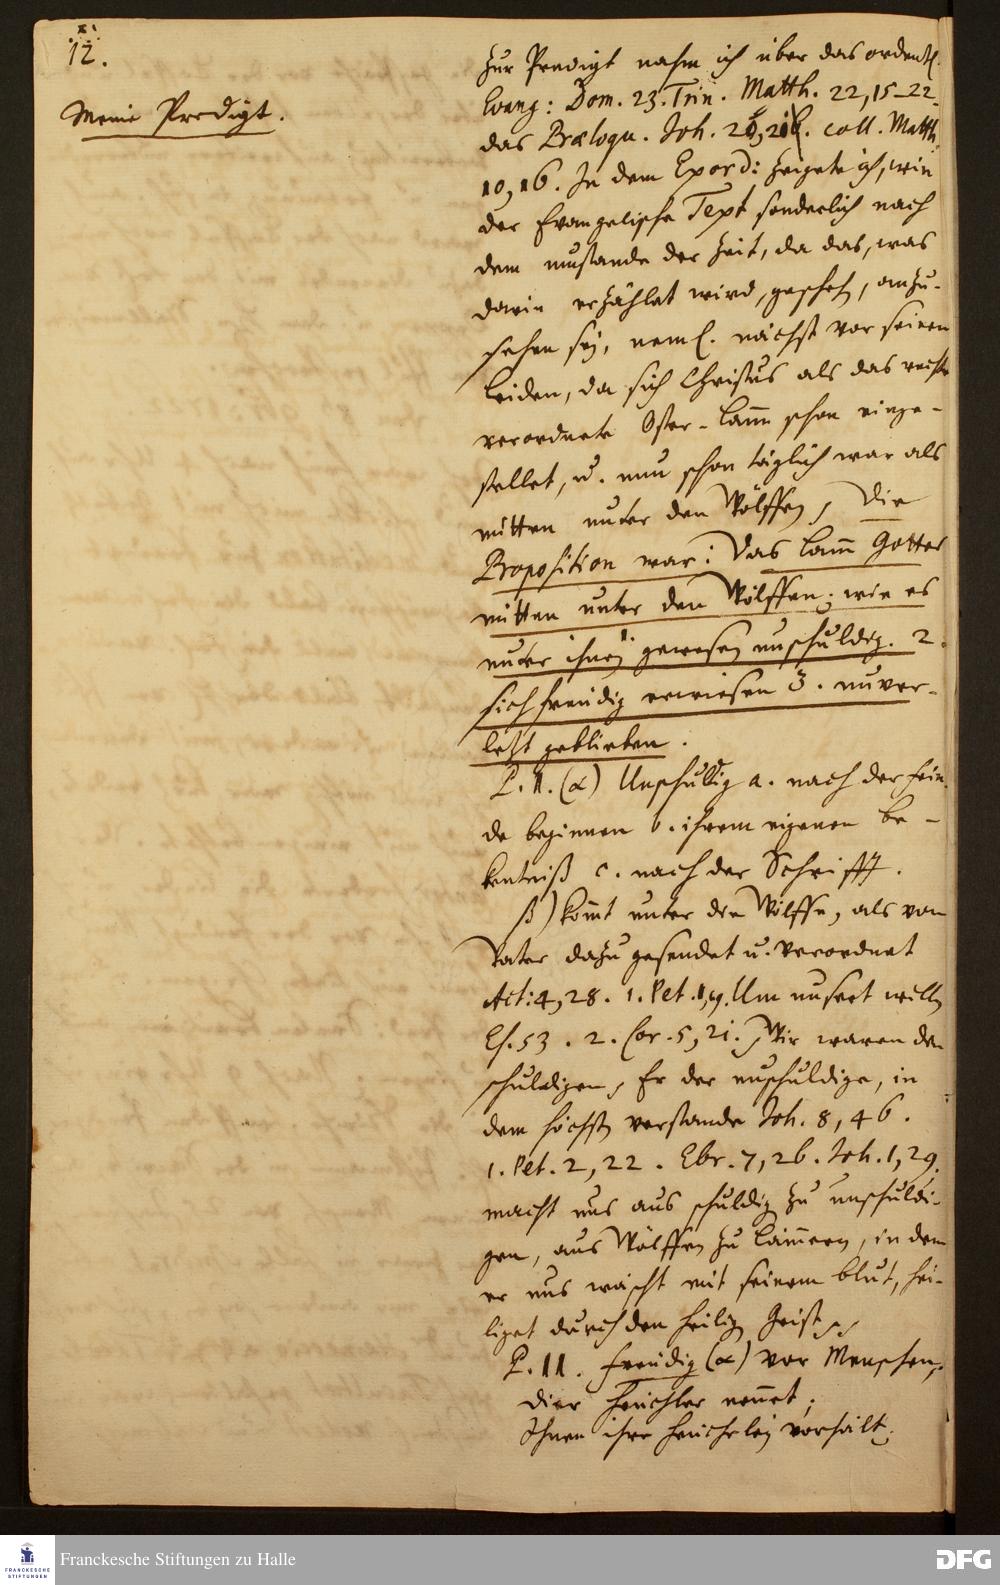 12.
Meine Predigt.
Zur Predigt nahm ich über das ordentl.
Evang: Dom. 23. Trin. Matth. 22, 15-22.
das Præloqu. Joh. coll. Matth.
10, 16. In dem Exord: zeigete ich, wie
der Evangelische Text sonderlich nach
dem umstande der Zeit, da das, was
darin erzählet wird, gescheh, anzu-
sehen sey, neml. nächst vor seinen
Leiden, da sich Christus als das rechte
verordnete Oster-Lamm schon einge-
stellet, u. nun schon täglich war als
mitten unter den Wölffen, Die
Proposition war: Das Lamm Gottes
mitten unter den Wölffen; wie es
unter ihnen 1 gewesen unschuldig. 2.
sich freudig erwiesen 3. unver-
letzt geblieben.
P. I. (α) Unschuldig a. nach der Fein-
de beginnen b. ihrem eigenen Be-
kentniß c. nach der Schrifft.
β) komt unter die Wölffe, als vom
Vater dazu gesendet u. verordnet
Act: 4, 28. 1. Pet. Um unsert willen
Es. 53. 2. Cor. 5, 21. Wir waren die
schuldigen, Er der unschuldige, in
dem höchsten verstande Joh. 8, 46.
1. Pet. 2, 22. Ebr. 7, 26. Joh. 1, 29.
macht uns aus schuldig zu unschuldi-
gen, aus Wölffen zu Lämmern, in dem
er uns wäscht mit seinem blut, hei-
liget durch den heilig Geist
P. II. freudig (α) vor Menschen,
die er Heuchler nennet;
Ihnen ihre heucheley vorhält;
FRANCKESCHE STIFTUNGEN
Franckesche Stiftungen zu Halle
DFG